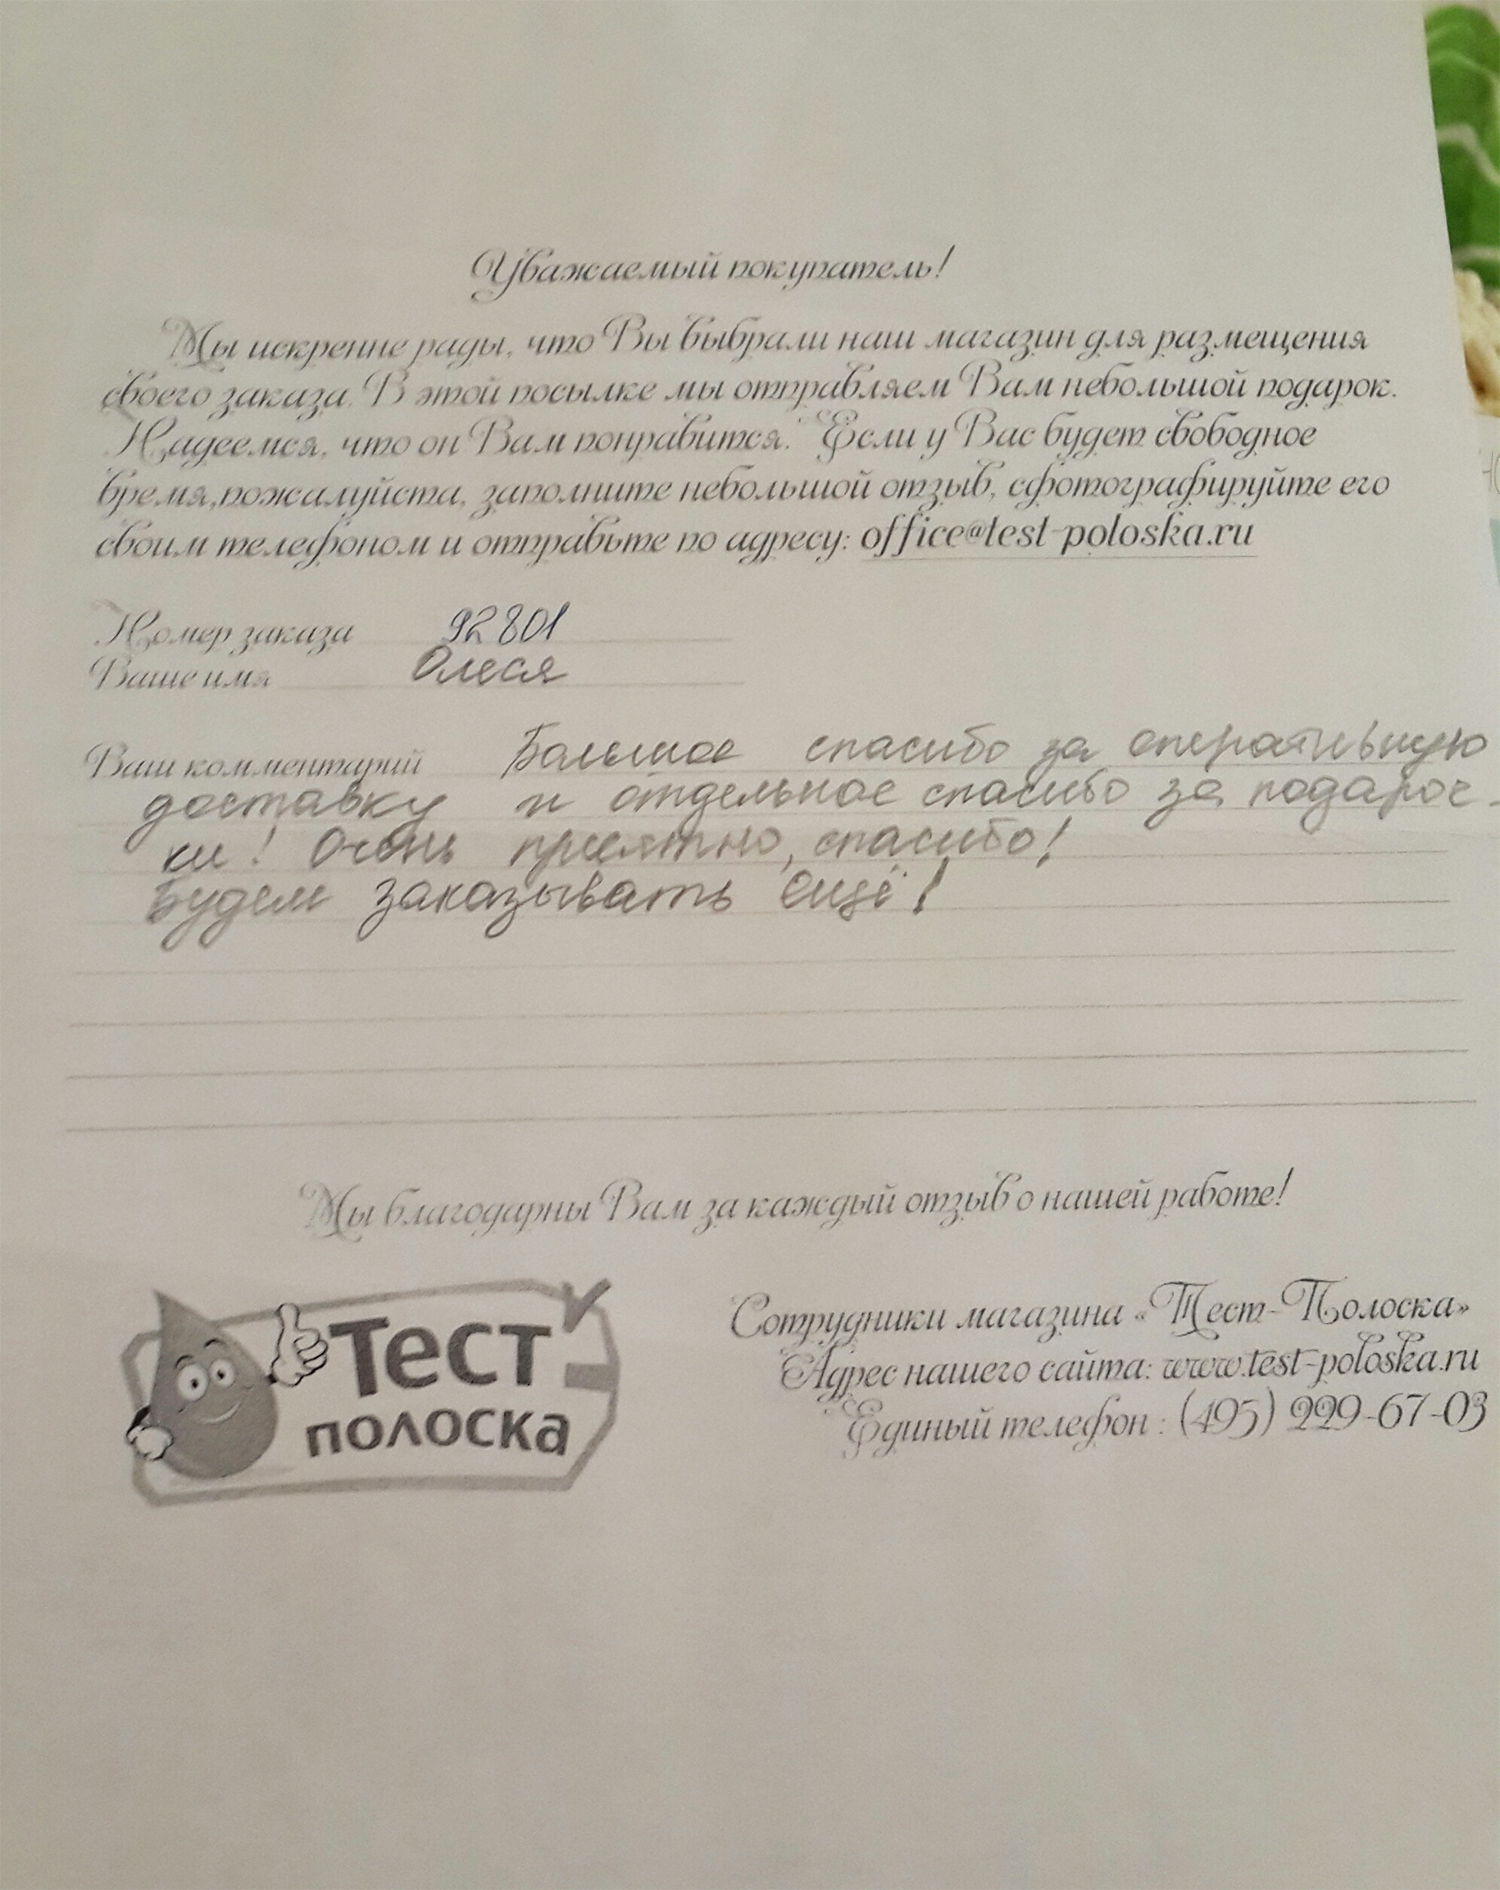 Уважаемый покупатель!
Мы искренне рады, что Вы выбрали наш магазин для размещения
своего заказа. В этой посылке мы отправляем Вам небольшой подарок.
Надеемся, что он Вам понравится. Если у Вас будет свободное
время,пожалуйста, заполните небольшой отзыв, сфотографируйте его
своим телефоном и отправьте по адресу: office@test-poloska.ru
Номер заказа 92801
Ваше имя Олеся
Ваш комментарий Большое спасибо за оперативную
доставку и отдельное спасибо за подароч-
ки! Очень приятно, спасибо!
Будем заказывать ещё!
Мы благодарны Вам за каждый отзыв о нашей работе!
Тест
полоска
Сотрудники магазина «Тест-Полоска»
Адрес нашего сайта: www.test-poloska.ru
Единый телефон : (495) 229-67-03